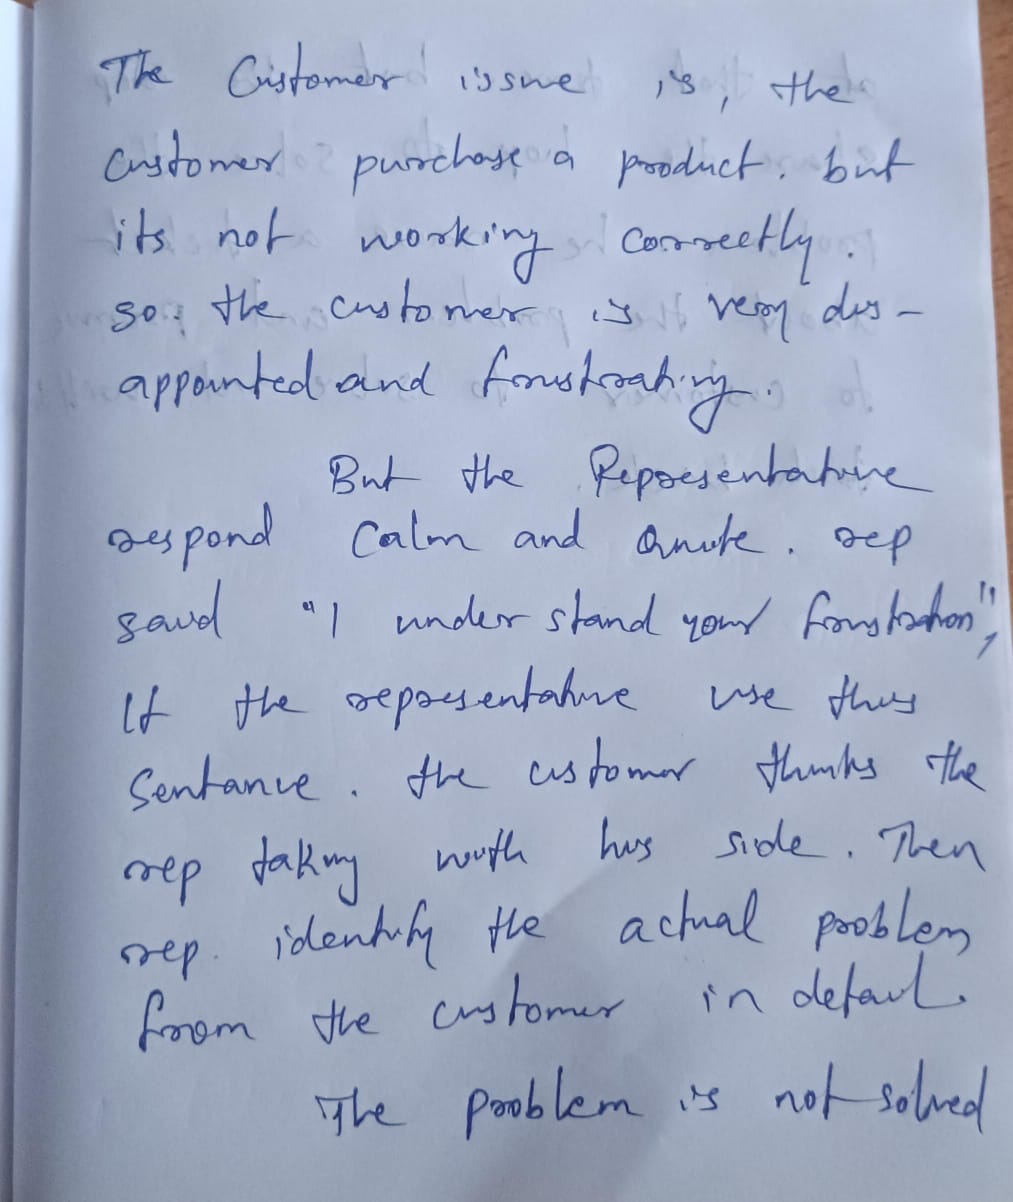 The Customer issue is, the
customer purchase a product. but
its not working correctly.
so. the customer is very dis-
appointed and frustrating.
But the Representative
respond Calm and Qnute. rep
said "I under stand your frustration",
If the representative use this
Sentance. the customer thinks the
rep taking with his side. Then
rep. identify the actual problem
from the customer in detail.
The problem is not solved